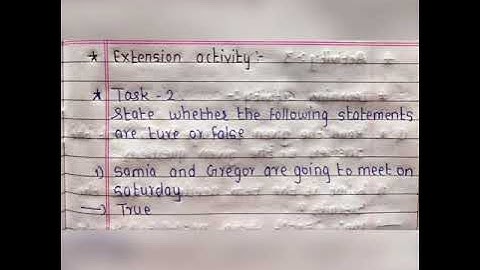 * Extension activity:-
* Task - 2
State whether the following statements
are ture or false
1) Samia and Gregor are going to meet on
saturday
→ True